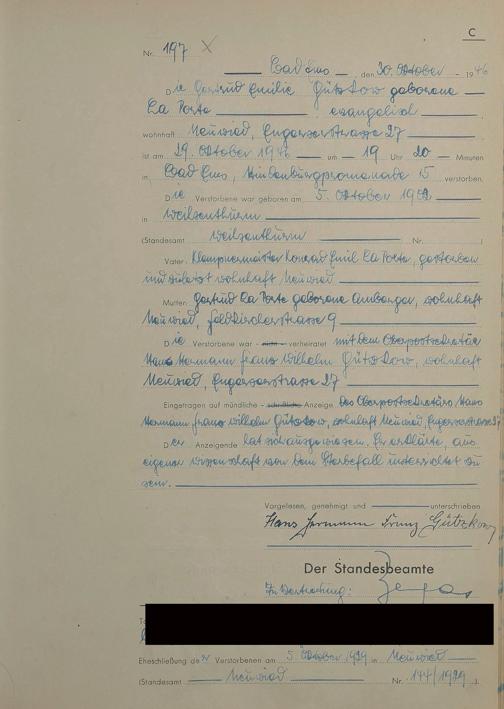 C
Nr. 197
Bad Ems, den 30. Oktober 1946
Die Gertrud Emilie Gützkow geborene
La Porte evangelisch
wohnhaft Neuwied, Engerserstrasse 27
ist am 29. Oktober 1946 um 19 Uhr 20 Minuten
in Bad Ems, Hindenburgpromenade 15 verstorben.
Die Verstorbene war geboren am 5. Oktober
in Weißenthurm
(Standesamt Weißenthurm Nr. )
Vater: Klempnermeister Konrad Emil La Porte, gestorben
und zuletzt wohnhaft Neuwied
Mutter: Gertrud La Porte geborene Amberger, wohnhaft
Neuwied, Feldkircherstrasse 9
Die Verstorbene war nicht verheiratet mit dem Oberpostsekretär
Hans Hermann Franz Wilhelm Gützkow, wohnhaft
Neuwied, Engerserstrasse 27
Eingetragen auf mündliche - schriftliche - Anzeige des Oberpostsekretärs Hans
Hermann Franz Wilhelm Gützkow, wohnhaft Neuwied, Engerserstrasse 27
Der Anzeigende hat sich ausgewiesen. Er erklärte, aus
eigener Wissenschaft von dem Sterbefall unterrichtet zu
sein.
Vorgelesen, genehmigt und unterschrieben
Hans Hermann Franz Gützkow
Der Standesbeamte
In Vertretung:
Eheschließung der Verstorbenen am 5. Oktober 1929 in Neuwied
(Standesamt Neuwied Nr. 144/1929 ).